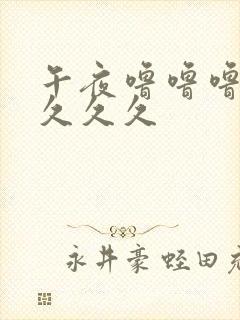 午夜噜噜噜
久久久
永井豪蛭田充